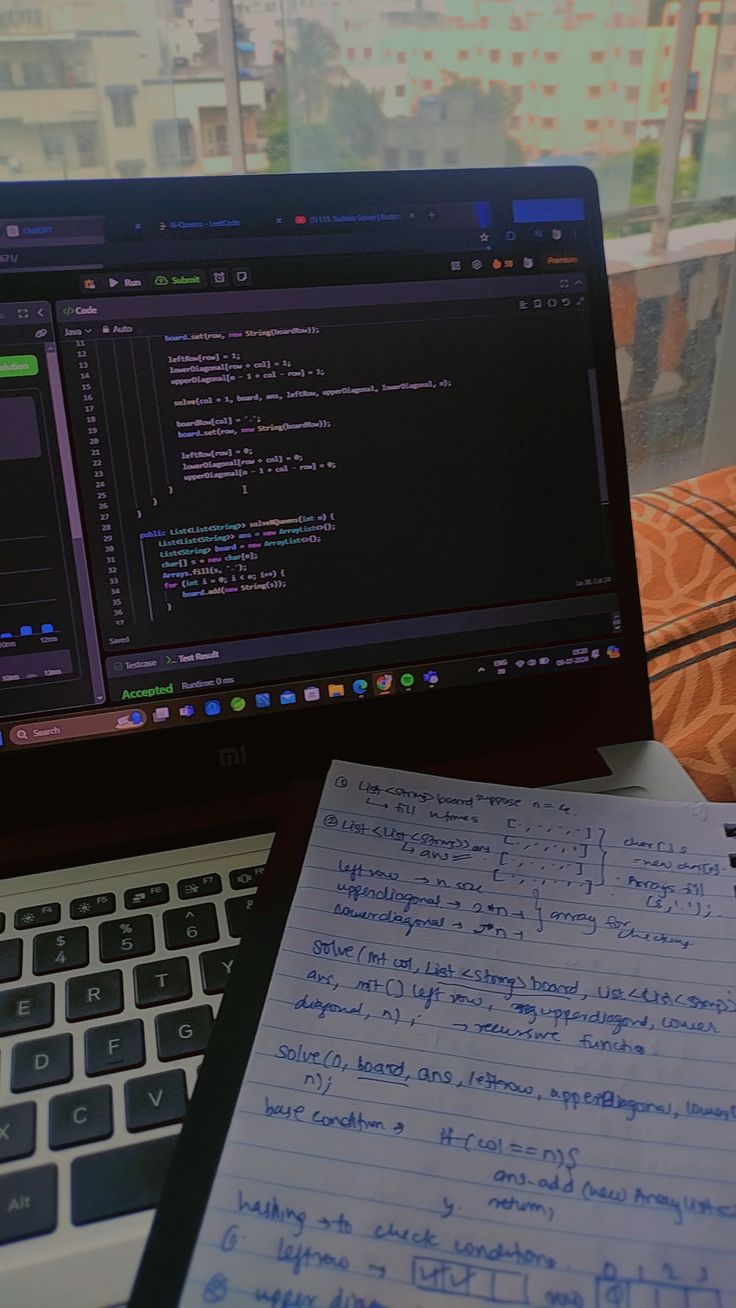 ChatGPT
N-Queens - LeetCode
(1) L15. Sudoko Solver | Back
671/
Run
Submit
38
Premium
</> Code
Java
Auto
olution
11 board.set(row, new String(boardRow));
12
13 leftRow[row] = 1;
14 lowerDiagonal[row + col] = 1;
15 upperDiagonal[n - 1 + col - row] = 1;
16
17 solve(col + 1, board, ans, leftRow, upperDiagonal, lowerDiagonal, n);
18
19 boardRow[col] = '.';
20 board.set(row, new String(boardRow));
21
22 leftRow[row] = 0;
23 lowerDiagonal[row + col] = 0;
24 upperDiagonal[n - 1 + col - row] = 0;
25 }
26 }
27 }
28
29 public List<List<String>> solveNQueens(int n) {
30 List<List<String>> ans = new ArrayList<>();
31 List<String> board = new ArrayList<>();
32 char[] s = new char[n];
33 Arrays.fill(s, '.');
34 for (int i = 0; i < n; i++) {
35 board.add(new String(s));
36 }
37
Saved
12ms
10ms 12ms
Testcase
>_ Test Result
Accepted
Runtime: 0 ms
Search
ENG
IN
06-07-2024
mi
F4 F5 F6 F7
$ 4
% 5
^ 6
E R T Y
D F G
X C V
Alt
① List <String> board suppose n = 4.
↳ fill n times [. , . , . , .]
② List <List <String>> ans [. , . , . , .]
↳ ans [. , . , . , .]
[. , . , . , .]
char [] s
= new char[n].
Arrays.fill
(s, '.');
left row → n size
upperdiagonal → 2*n-1
lowerdiagonal → 2*n-1
array for
checking.
solve (int col, List <String> board, List <List <String>>
ans, int [] left row, upperdiagonal, lower
diagonal, n); → recursive
solve (0, board, ans, leftrow, upperDiagonal, lower
n);
base condition → if (col == n) {
ans.add (new ArrayList <
return;
}
hashing → to check conditions. 0 1 2 3
①. leftrow → row
② upper